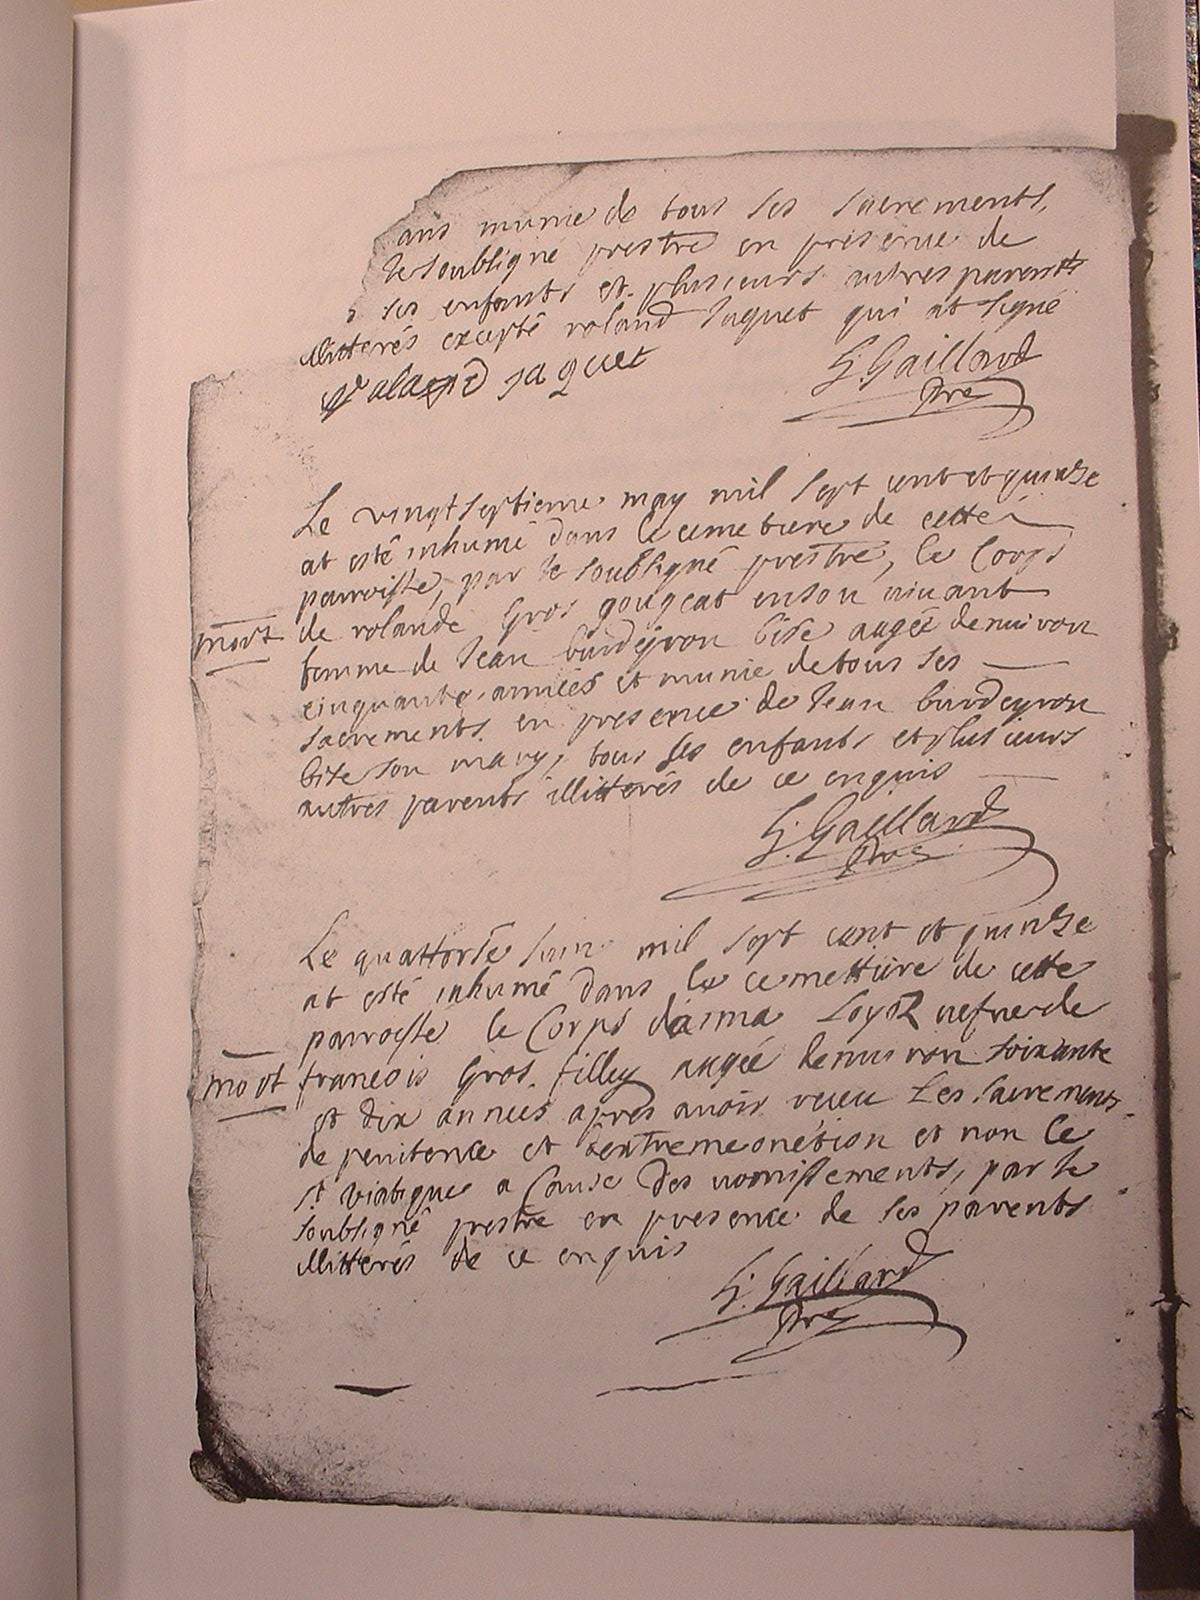 ans munie de tous ses sacrements,
le soubsigné prestre en presence de
ses enfants et plusieurs autres parents
illitterés excepté roland Jaquet qui at signé
jaquet
G. Gaillard
Pre
Le vingt septieme may mil sept cent et quinze
at esté inhumé dans le cemetiere de cette
parroisse, par le soubsigné prestre, le Corps
mort
de rolande Gros gougeat en son vivant
femme de Jean burdeyron bise augée d'environ
cinquante années et munie de tous ses
sacrements en presence de Jean burdeyron
bise son mary, tous ses enfants et plusieurs
autres parents illitterés de ce enquis
G. Gaillard
Pre
Le quattorse Juin mil sept cent et quinze
at esté inhumé dans le cemettiere de cette
parroisse le Corps d'aima vefve de
mort
francois Gros filley augée d'environ soixante
et dix annees apres avoir receu Les sacrements
de penitence et d'extreme onction et non le
st viatique a Cause des vomissements, par le
soubsigné prestre en presence de ses parents
illitterés de ce enquis
G. Gaillard
Pre